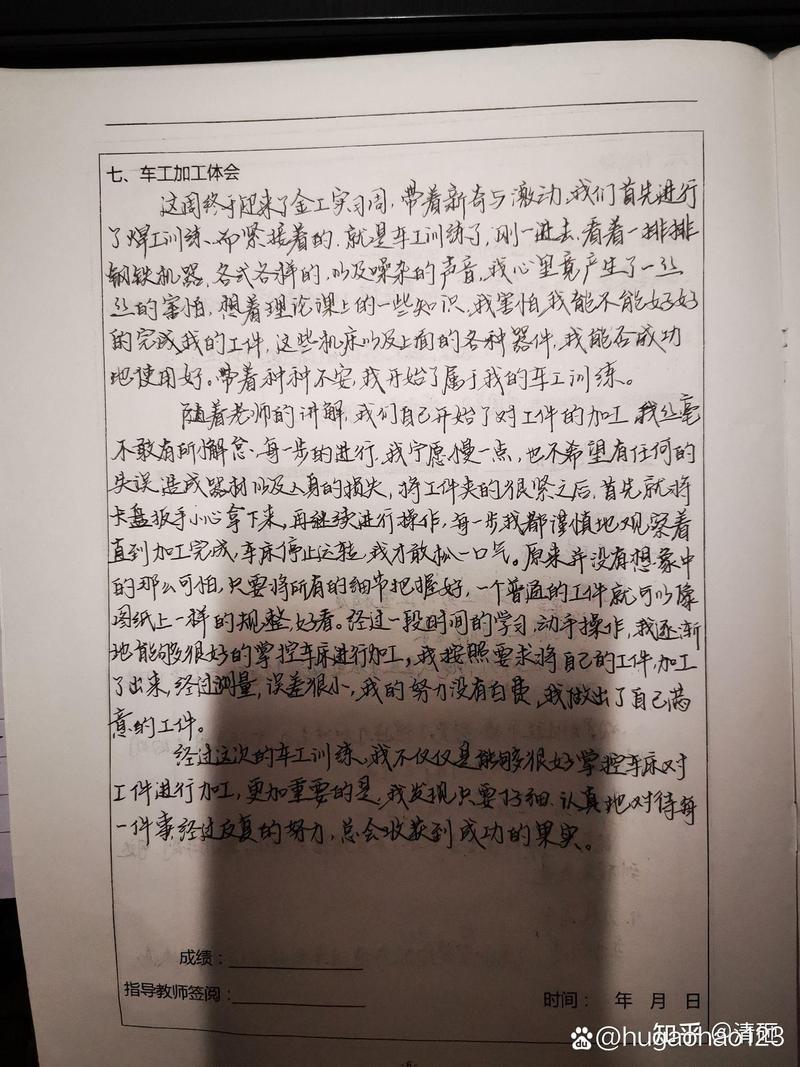 七、车工加工体会
这周终于迎来了金工实习周，带着新奇与激动，我们首先进行
了焊工训练、而紧接着的，就是车工训练了，刚一进去，看着一排排
钢铁机器，各式各样的，以及噪杂的声音，我心里竟产生了一丝
丝的害怕，想着理论课上的一些知识，我害怕，我能不能好好
的完成我的工件，这些机床以及上面的各种器件，我能否成功
地使用好。带着种种不安，我开始了属于我的车工训练。
随着老师的讲解，我们自己开始了对工件的加工，我丝毫
不敢有所懈怠、每一步的进行，我宁愿慢一点，也不希望有任何的
失误造成器材以及人身的损失，将工件夹的很紧之后，首先就将
卡盘扳手小心拿下来，再继续进行操作，每一步我都谨慎地观察着
直到加工完成，车床停止运转，我才敢松一口气。原来并没有想象中
的那么可怕，只要将所有的细节把握好，一个普通的工件就可以像
图纸上一样的规整，好看。经过一段时间的学习，动手操作，我逐渐
地能够很好的掌控车床进行加工，我按照要求将自己的工件，加工
了出来，经过测量，误差很小，我的努力没有白费，我做出了自己满
意的工件。
经过这次的车工训练，我不仅仅是能够很好掌控车床对
工件进行加工，更加重要的是，我发现只要仔细、认真地对待每
一件事，经过反复的努力，总会收获到成功的果实。
成绩：
指导教师签阅：
时间： 年 月 日
知乎 @清砸
@hugaohao123